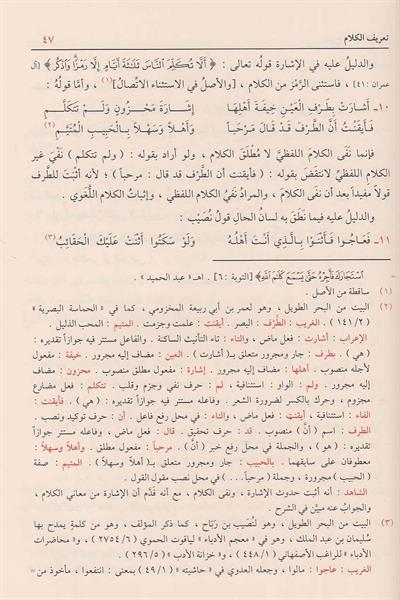 تعريف الكلام ٤٧
والدليلُ عليه في الإشارة قولُه تعالى : ﴿ أَلَّا تُكَلِّمَ ٱلنَّاسَ ثَلَٰثَةَ أَيَّامٍ إِلَّا رَمْزًا وَٱذْكُر ﴾ [آل
عمران :٤١] ، فاستثنى الرَّمْزَ من الكلامِ ، [والأصلُ في الاستثناءِ الاتّصالُ](١) ، وأمّا قولُهُ :
١٠ـ أَشارَتْ بِطَرْفِ العَيْنِ خِيفَةَ أَهْلِها إشارَةَ مَحْزُونٍ وَلَمْ تَتَكَلَّمِ
فَأَيقَنْتُ أَنَّ الطَّرْفَ قَدْ قالَ مَرْحَباً وَأَهْلاً وَسَهْلاً بِالْحَبِيبِ المُتَيَّمِ(٢)
فإنما نَفَى الكلامَ اللفظيَّ لا مُطلَقَ الكلامِ ، ولو أراد بقوله : ( ولم تتكلمِ ) نَفْيَ غيرِ
الكلامِ اللفظيِّ لانتقَضَ بقوله : ( فأيقنت أن الطَّرف قد قال : مرحباً ) ؛ لأنه أثبَتَ للطَّرف
قولاً مفيداً بعد أن نفى الكلامَ ، والمرادُ نَفْيُ الكلامِ اللفظي ، وإثباتُ الكلامِ اللُّغوي .
والدليلُ عليه فيما نَطَقَ به لسانُ الحالِ قولُ نُصَيْب :
١١ـ فَعاجُوا فَأَثْنَوْا بِالَّذِي أَنْتَ أَهْلُهُ وَلَوْ سَكَتُوا أَثْنَتْ عَلَيْكَ الْحَقائِبُ(٣)
ٱسْتَجَارَكَ فَأَجِرْهُ حَتَّىٰ يَسْمَعَ كَلَٰمَ ٱللَّهِ﴾ [التوبة : ٦] . اهـ« عبد الحميد » .
(١) ساقطة من الأصل .
(٢) البيت من البحر الطويل ، وهو لعمر بن أبي ربيعة المخزومي ، كما في « الحماسة البصرية »
( ١٤١/٢ ) . الغريب : الطَّرْف : البصر . أيقنت : علمت وجزمت . المتيم : المحب الذليل .
الإعراب : أشارت : فعل ماض ، والتاء : تاء التأنيث الساكنة . والفاعل مستتر فيه جوازاً تقديره
( هي ) . بطرف : جار ومجرور متعلق بـ( أشارت ) . العين : مضاف إليه مجرور . خيفة : مفعول
لأجله منصوب . أهلها : مضاف إليه مجرور . إشارة : مفعول مطلق منصوب . محزون : مضاف
إليه مجرور . ولم : الواو : استئنافية ، لم : حرف نفي وجزم وقلب . تتكلم : فعل مضارع
مجزوم ، وحرك بالكسر لضرورة الشعر . وفاعله مستتر فيه جوازاً تقديره : ( هي ) . فأيقنت :
الفاء : استئنافية ، أيقنت : فعل ماض ، والتاء : في محل رفع فاعل . أن : حرف توكيد ونصب .
الطرف : اسم ( أنّ ) منصوب . قد : حرف تحقيق . قال : فعل ماض ، وفاعله مستتر جوازاً
تقديره : ( هو ) ، والجملة في محل رفع خبر ( أنّ ) . مرحباً : مفعول مطلق . وأهلاً وسهلاً :
معطوفان على سابقهما . بالحبيب : جار ومجرور متعلق بـ( أهلاً وسهلاً ) . المتيم : صفة
( الحبيب ) مجرورة ، وجملة ( مرحباً . . . ) في محل نصب مقول القول .
الشاهد : أنه أثبت حدوث الإشارة ، ونفى الكلام ، مع أنه قدَّم أن الإشارة من معاني الكلام ،
والجواب عنه مبيَّن في الشرح .
(٣) البيت من البحر الطويل ، وهو لنُصَيب بن رَبَاح ، كما ذكر المؤلف ، وهو من كلمةٍ يمدح بها
سليمان بن عبد الملك ، وهو في « معجم الأدباء » لياقوت الحموي ( ٢٧٥٤/٦ ) ، و« محاضرات
الأدباء » للراغب الأصفهاني ( ٤٤٨/١ ) ، و« خزانة الأدب » ( ٢٩٦/٥ ) .
الغريب : عاجوا : مالوا ، وجعله العدوي في « حاشيته » ( ٤٩/١ ) بمعنى : انتفعوا ، مأخوذ من =